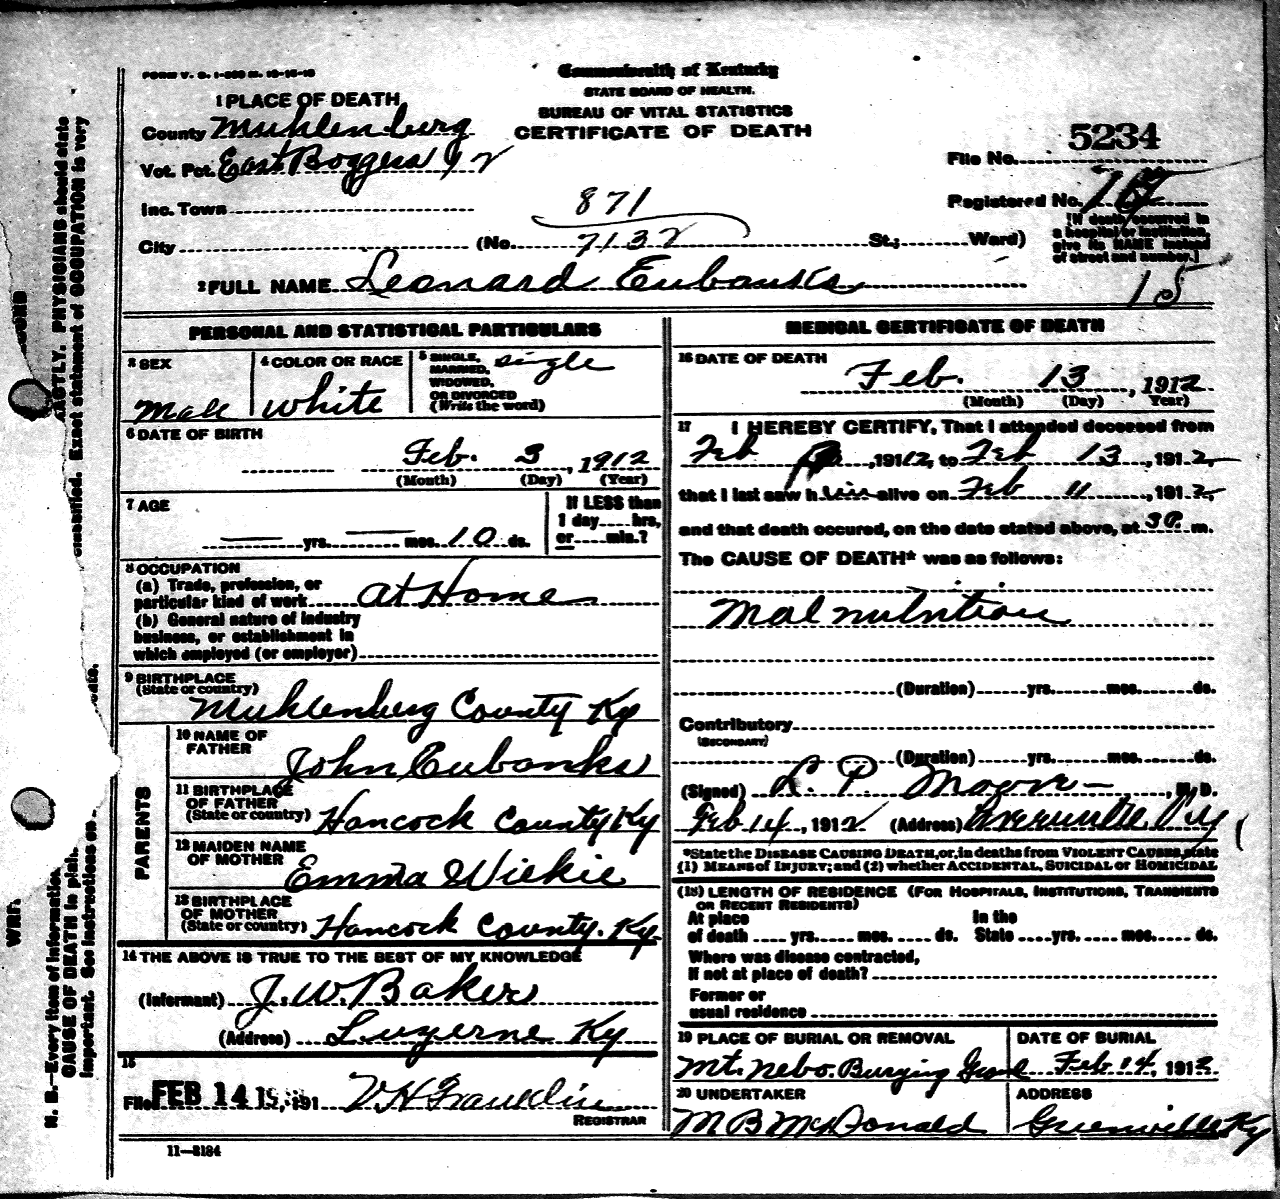 FORM V. S. 1-
Commonwealth of Kentucky
STATE BOARD OF HEALTH.
BUREAU OF VITAL STATISTICS
CERTIFICATE OF DEATH
1 PLACE OF DEATH
County Muhlenburg
Vot. Pct. East Boggess 92
Inc. Town
City (No. St.; Ward)
871
7132
5234
File No.
Registered No.
[If death occurred in
a hospital or institution,
give its NAME instead
of street and number.]
15
2 FULL NAME Leonard Eubanks
PERSONAL AND STATISTICAL PARTICULARS
3 SEX
Male
4 COLOR OR RACE
White
5 SINGLE,
MARRIED,
WIDOWED,
OR DIVORCED
(Write the word)
single
6 DATE OF BIRTH
Feb. 3, 1912
(Month) (Day) (Year)
7 AGE
— yrs. — mos. 10 ds.
If LESS than
1 day....hrs,
or....min.?
8 OCCUPATION
(a) Trade, profession, or
particular kind of work at Home
(b) General nature of industry
business, or establishment in
which employed (or employer)
9 BIRTHPLACE
(State or country)
Muhlenberg County Ky
PARENTS
10 NAME OF
FATHER
John Eubanks
11 BIRTHPLACE
OF FATHER
(State or country)
Hancock County Ky
12 MAIDEN NAME
OF MOTHER
Emma Wilkie
13 BIRTHPLACE
OF MOTHER
(State or country)
Hancock County. Ky.
14 THE ABOVE IS TRUE TO THE BEST OF MY KNOWLEDGE
(Informant) J. W. Baker
(Address) Luzerne Ky
15
Filed FEB 14 191
V. H. Franklin
REGISTRAR
11—3184
MEDICAL CERTIFICATE OF DEATH
16 DATE OF DEATH
Feb. 13, 1912
(Month) (Day) Year)
17 I HEREBY CERTIFY, That I attended deceased from
Feb , 1912, to Feb 13, 1912,
that I last saw him alive on Feb 11, 1912,
and that death occured, on the date stated above, at 3P. m.
The CAUSE OF DEATH* was as follows:
Malnutrition
(Duration) yrs. mos. ds.
Contributory
(SECONDARY)
(Duration) yrs. mos. ds.
(Signed) L. P. Moore, M. D.
Feb 14, 1912 (Address)
*State the DISEASE CAUSING DEATH, or, in deaths from VIOLENT CAUSES, state
(1) MEANS of INJURY; and (2) whether ACCIDENTAL, SUICIDAL or HOMICIDAL
(18) LENGTH OF RESIDENCE (FOR HOSPITALS, INSTITUTIONS, TRANSIENTS
OR RECENT RESIDENTS)
At place In the
of death yrs. mos. ds. State yrs. mos. ds.
Where was disease contracted,
If not at place of death?
Former or
usual residence
19 PLACE OF BURIAL OR REMOVAL
Mt. Nebo. Burying Ground
DATE OF BURIAL
Feb 14, 1912
20 UNDERTAKER
M B McDonald
ADDRESS
Greenville Ky
N. B.—Every item of information
CAUSE OF DEATH in plain
important. See instructions on
EXACTLY. PHYSICIANS should state
classified. Exact statement of OCCUPATION is very